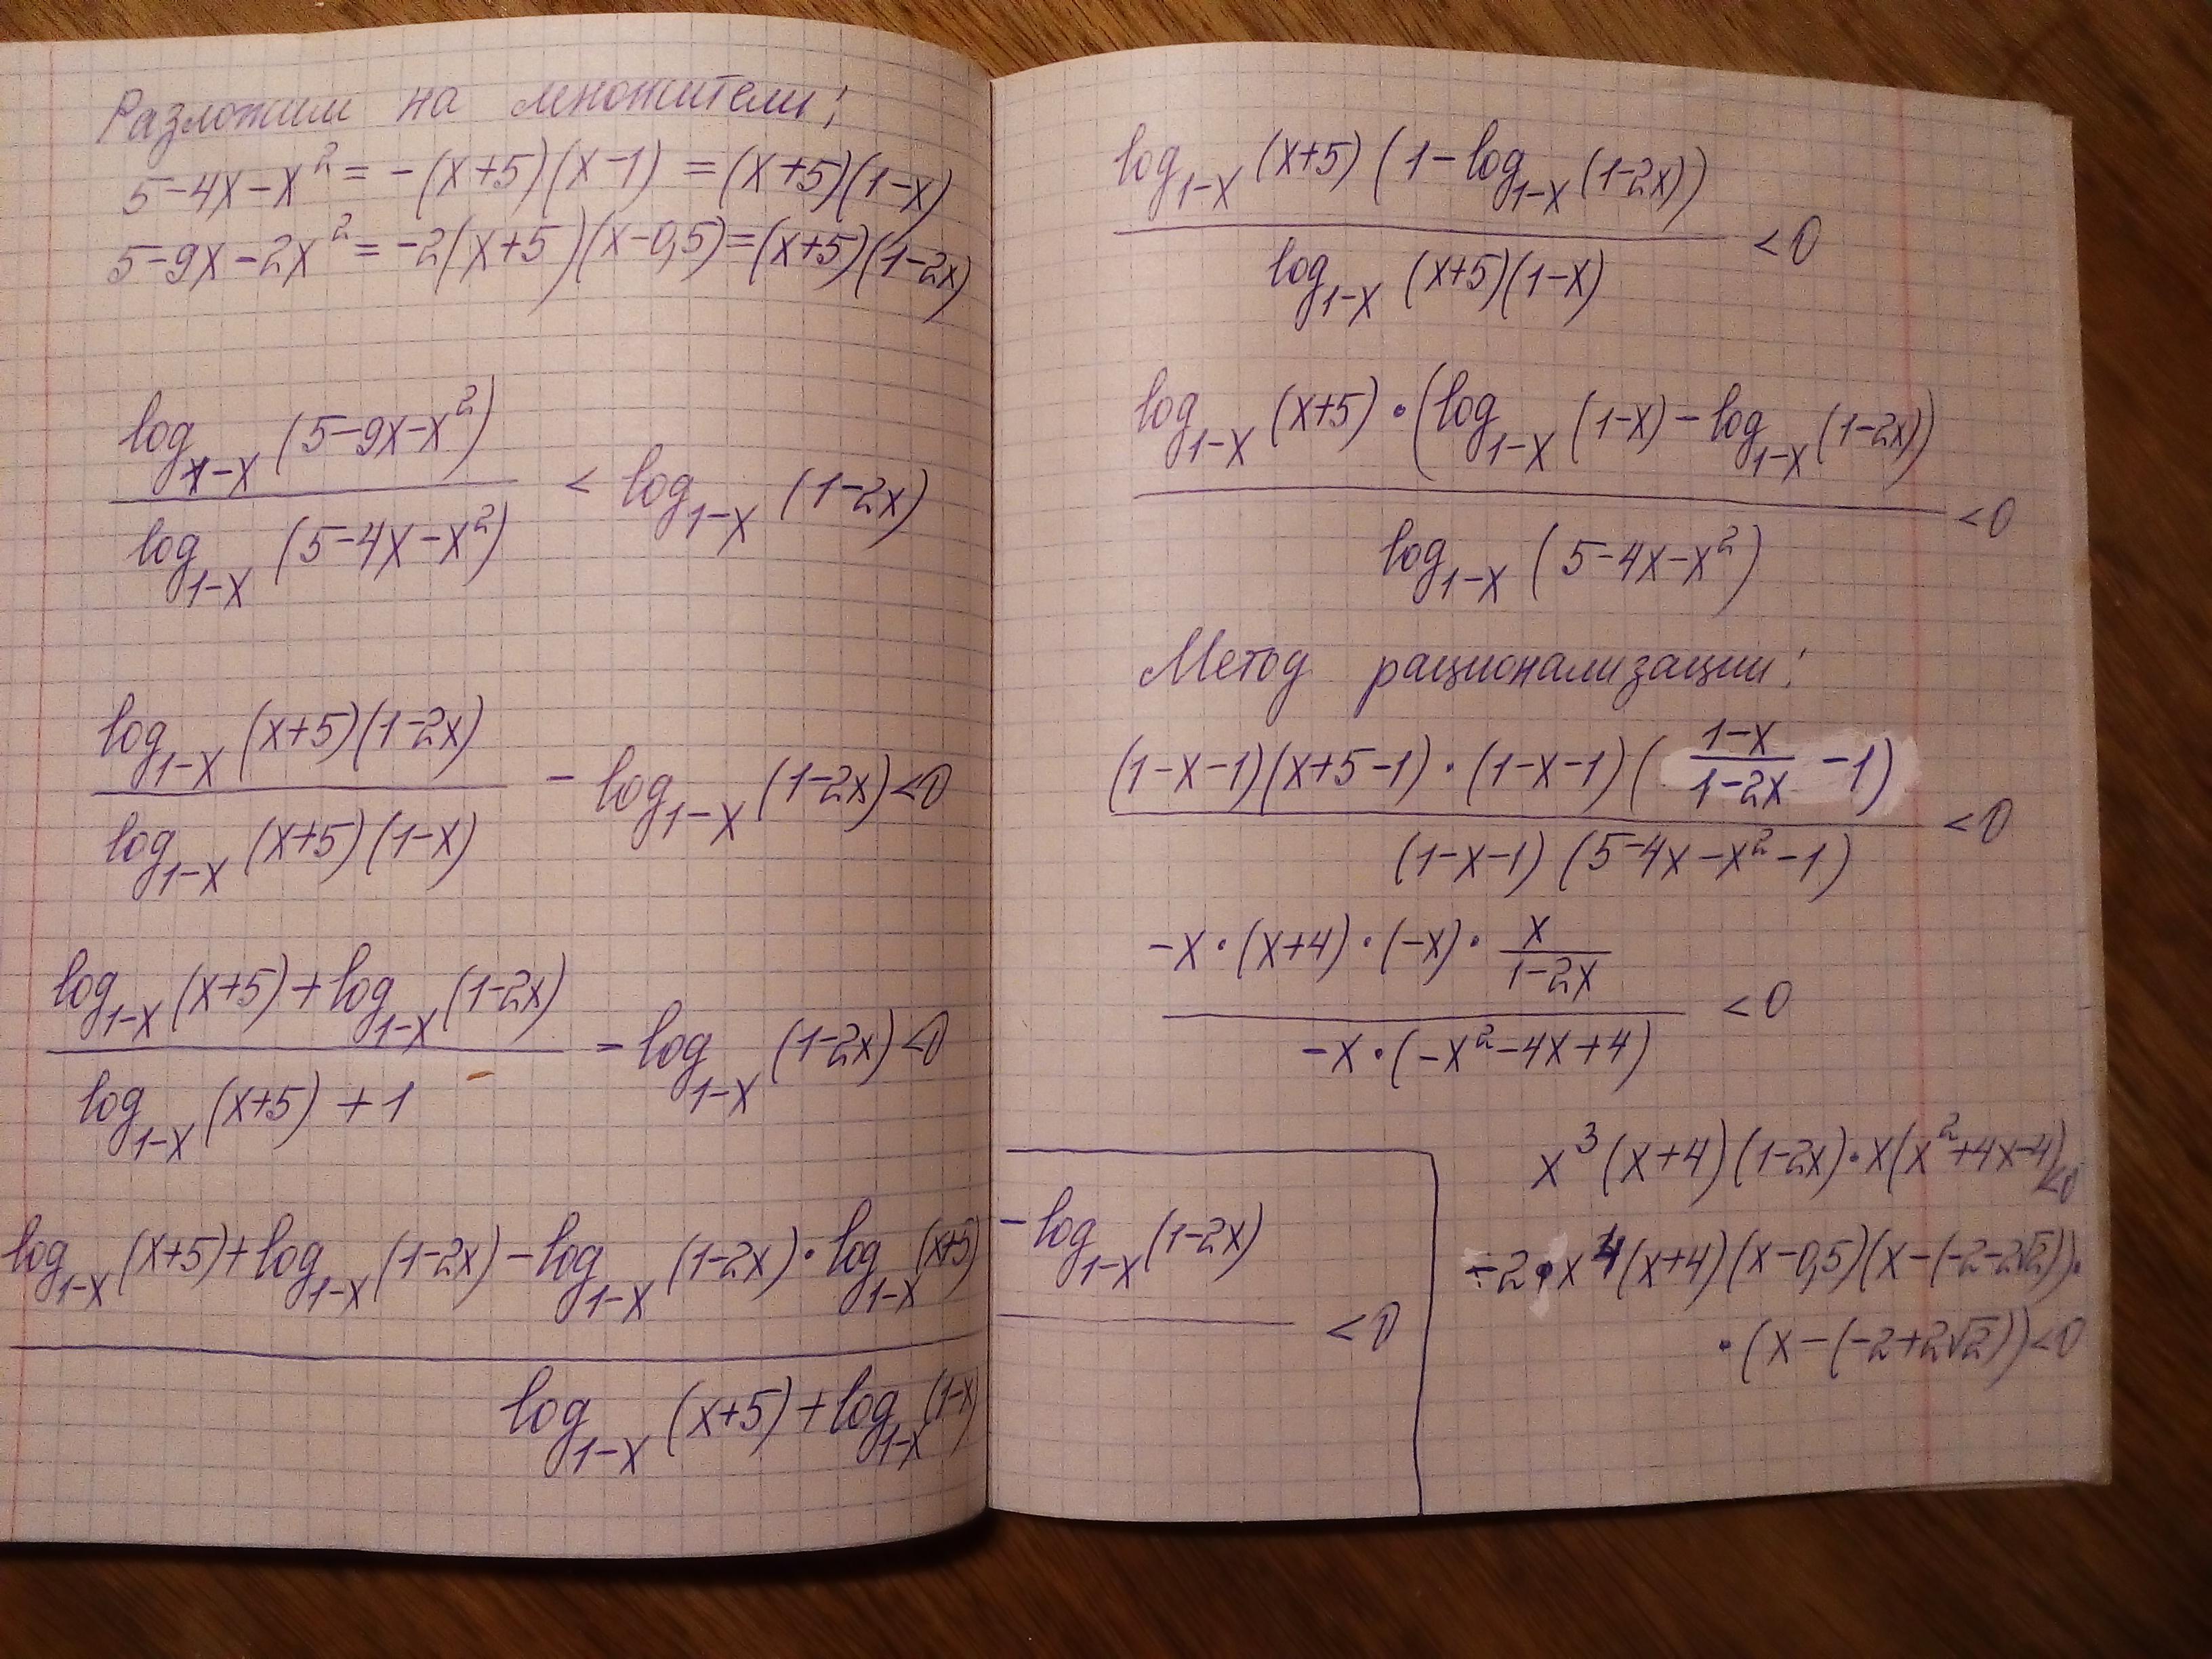 Разложим на множители:
5-4x-x² = -(x+5)(x-1) = (x+5)(1-x)
5-9x-2x² = -2(x+5)(x-0,5)=(x+5)(1-2x)
log_{1-x}(5-9x-x²)
< log_{1-x}(1-2x)
log_{1-x}(5-4x-x²)
log_{1-x}(x+5)(1-2x)
- log_{1-x}(1-2x)<0
log_{1-x}(x+5)(1-x)
log_{1-x}(x+5)+log_{1-x}(1-2x)
- log_{1-x}(1-2x)<0
log_{1-x}(x+5)+1
log_{1-x}(x+5)+log_{1-x}(1-2x)-log_{1-x}(1-2x)·log_{1-x}(x+5)
log_{1-x}(x+5)+log_{1-x}(1-x)
-log_{1-x}(1-2x)
<0
log_{1-x}(x+5)(1-log_{1-x}(1-2x))
<0
log_{1-x}(x+5)(1-x)
log_{1-x}(x+5)·(log_{1-x}(1-x)-log_{1-x}(1-2x))
<0
log_{1-x}(5-4x-x²)
Метод рационализации:
(1-x-1)(x+5-1)·(1-x-1)(\frac{1-x}{1-2x}-1)
<0
(1-x-1)(5-4x-x²-1)
-x·(x+4)·(-x)·\frac{x}{1-2x}
<0
-x·(-x²-4x+4)
x³(x+4)(1-2x)·x(x²+4x-4)<0
-2·x⁴(x+4)(x-0,5)(x-(-2-2√2))·
·(x-(-2+2√2))<0